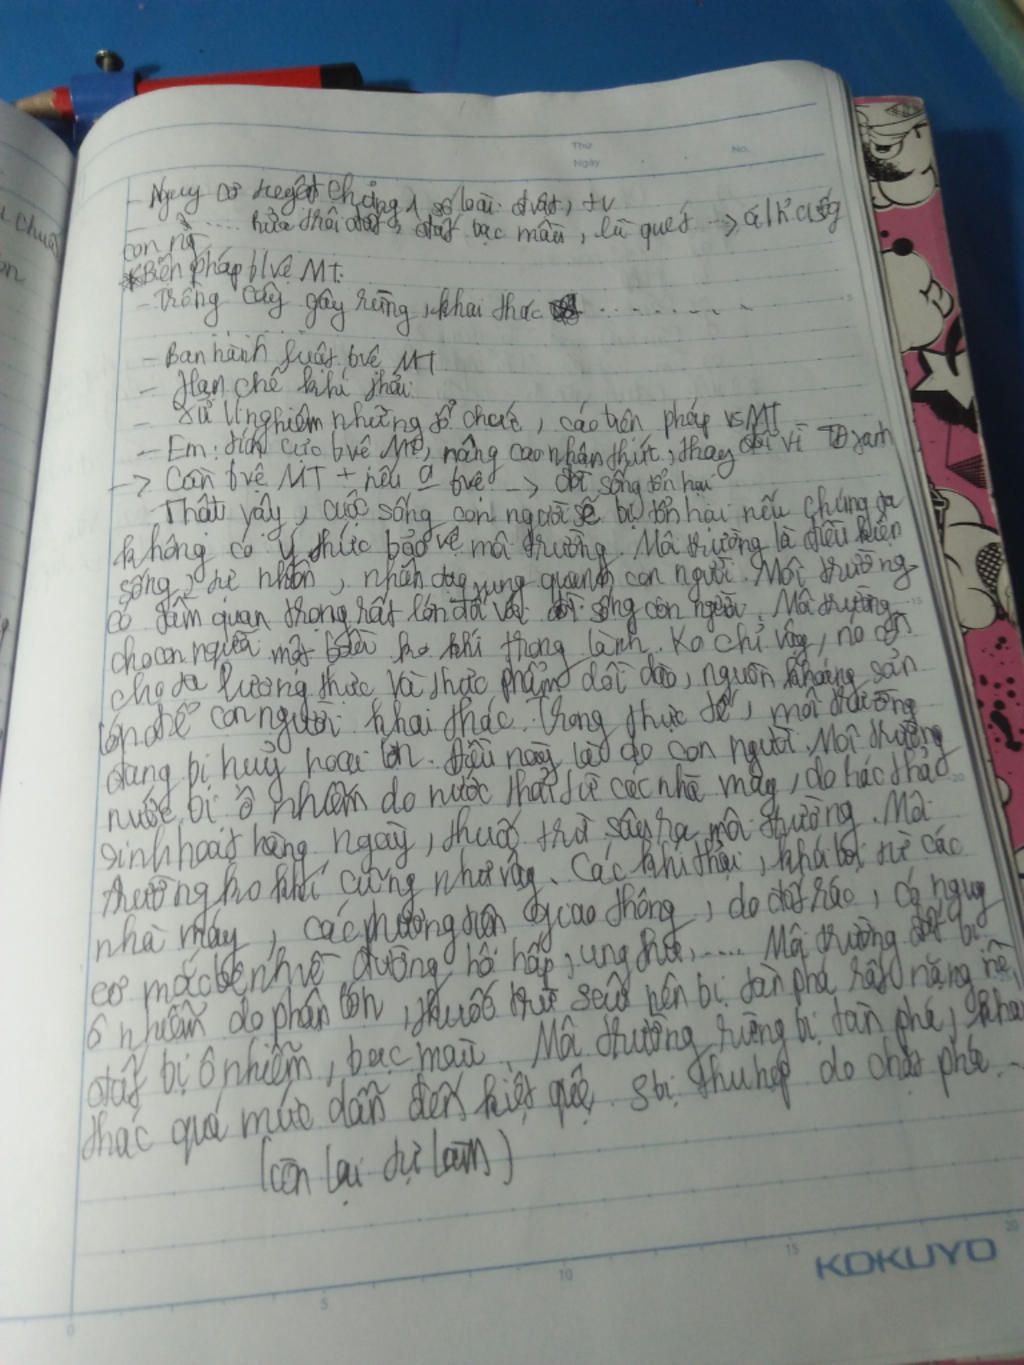 Thứ
Ngày
No.
- Nguy cơ tuyệt chủng 1 số loài đvật, tv
- ..... hửa thôi đất, đất bạc màu, lũ quét → a/h c/sống
con ng
* Biện pháp b/vệ MT:
- Trồng cây gây rừng, khai thác ........
- Ban hành luật bvệ MT
- Hạn chế khí thải
- Xử lí nghiêm những tổ chức, cá pháp vs MT
- Em: tích cực bvệ MT, nâng cao nhận thức, thay đổi vì TĐ xanh
-> Cần bvệ MT + nếu bvệ -> đời sống tổn hại
Thật vậy, cuộc sống con người sẽ bị tổn hại nếu chúng ta
không có ý thức bảo vệ môi trường. Môi trường là điều kiện
sống, tự nhiên, nhân tạo xung quanh con người. Môi trường
có tầm quan trọng rất lớn đối với đời sống con người. Môi trường
cho con người một bầu ko khí trong lành. Ko chỉ vậy, nó còn
cho ta lương thực và thực phẩm dồi dào, nguồn khoáng sản
lớn để con người khai thác. Trong thực tế, môi trường
đang bị huỷ hoại lớn. Điều này là do con người. Môi trường
nước bị ô nhiễm do nước thải từ các nhà máy, do rác thải
sinh hoạt hàng ngày, thuốc trừ sâu ra môi trường. Môi
trường ko khí cũng như vậy. Các khí thải, khói bụi từ các
nhà máy, các phương tiện giao thông, do đốt rác, có nguy
cơ mắc bệnh về đường hô hấp, ung thư,..... Môi trường đất bị
ô nhiễm do phân bón, thuốc trừ sâu nên bị tàn phá rất nặng nề,
đất bị ô nhiễm, bạc màu. Môi trường rừng bị tàn phá, khai
thác quá mức dẫn đến kiệt quệ. S bị thu hẹp do chặt phá.
(còn lại tự làm)
KOKUYO
0 5 10 15 20